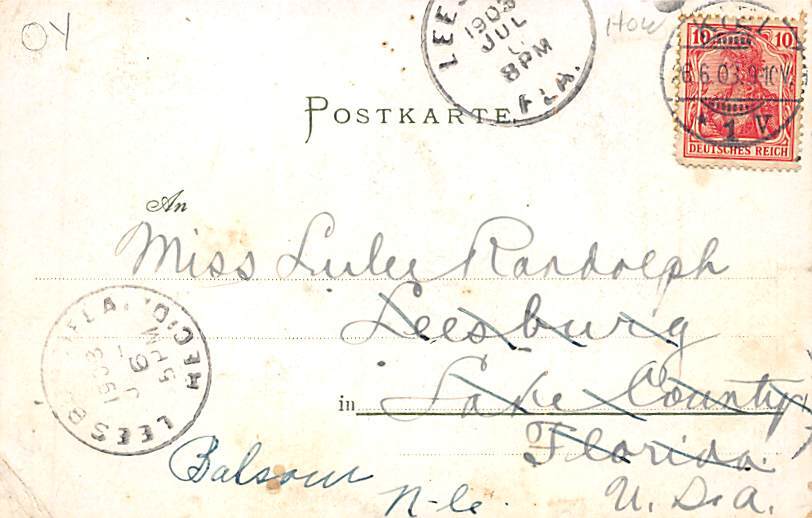 OY
LEES
1903
JUL
8PM
FLA.
How
KIEL
10 10
6.6.03.9-10V.
* 1 V.
DEUTSCHES REICH
POSTKARTE.
An
Miss Lulu Randolph
Leesburg
in Lake County
Florida
U. S. A.
LEESB FLA.
REC'D.
5 PM
1903
Balsam
N-C.